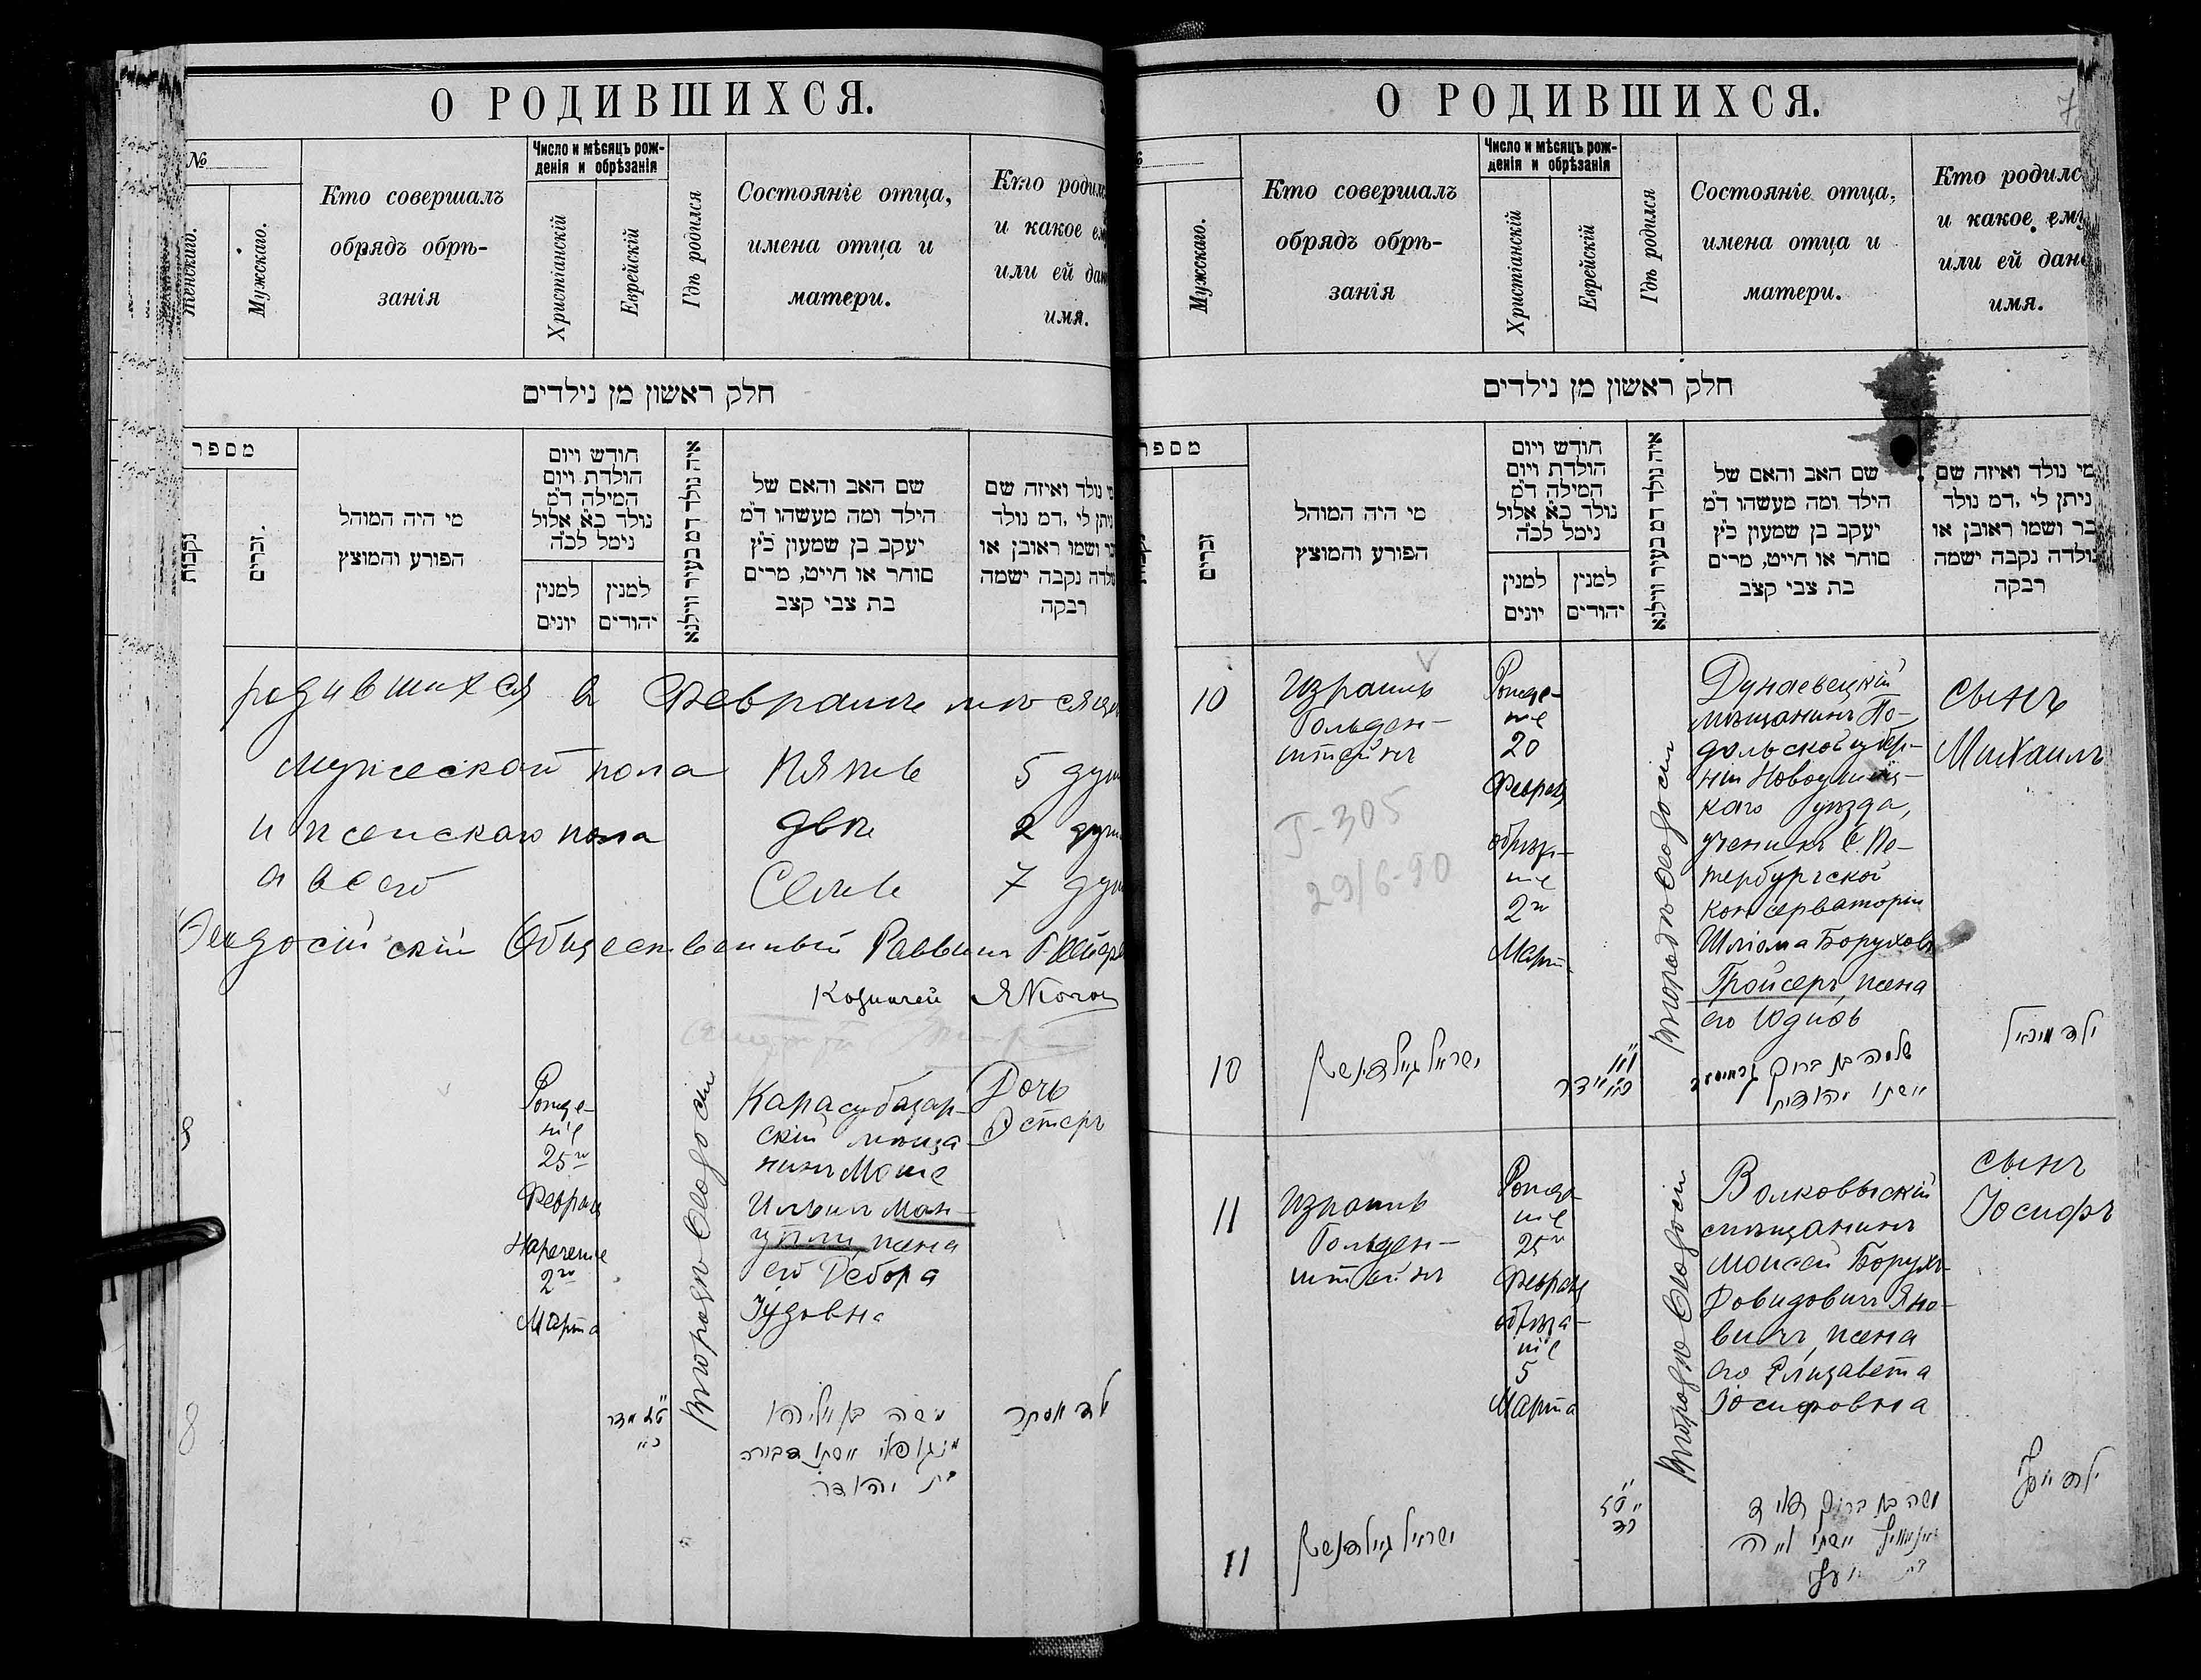 О РОДИВШИХСЯ.
№
Женскаго.
Мужскаго.
Кто совершалъ
обрядъ обрѣ-
занія
Число и мѣсяцъ рож-
денія и обрѣзанія
Христіанскій
Еврейскій
Гдѣ родился
Состояніе отца,
имена отца и
матери.
Кто родилс
и какое ем
или ей дан
имя.
חלק ראשון מן נילדים
מספר
נקבות
זכרים.
מי היה המוהל
הפורע והמוצץ
חודש ויום
הולדת ויום
המילה ד״מ
נולד כ״א אלול
נימל לכ״ה
למנין
יונים
למנין
יהודים
איה נולד דמ בעיר ווילנא
שם האב והאם של
הילד ומה מעשהו ד״מ
יעקב בן שמעון כ״ץ
סוחר או חייט, מרים
בת צבי קצב
מי נולד ואיזה שם
ניתן לי, דמ נולד
בר ושמו ראובן או
נולדה נקבה ישמה
רבקה
родившихся в Февралѣ мѣсяцѣ
мужескаго пола пять 5 душ
и женскаго пола двѣ 2 душ
а всего Семь 7 душ
Феодосійскій Общественный Раввинъ
Казначей
8
Рожде-
ніе
25го
Февраля
Нареченіе
2го
Марта
Въ городѣ Феодосіи
Карасубазар-
скій мѣща
нинъ Моше
Ильичъ Ман-
жена
его Дебора
Іудовна
Дочь
Эстеръ
8
משה בן אליהו
אשתו דבורה
בת יהודה
ילד׳ אסתר
О РОДИВШИХСЯ.
7
Мужскаго.
Кто совершалъ
обрядъ обрѣ-
занія
Число и мѣсяцъ рож-
денія и обрѣзанія
Христіанскій
Еврейскій
Гдѣ родился
Состояніе отца,
имена отца и
матери.
Кто родилс
и какое ему
или ей дан
имя.
חלק ראשון מן נילדים
מספר
זכרים
מי היה המוהל
הפורע והמוצץ
חודש ויום
הולדת ויום
המילה ד״מ
נולד כ״א אלול
נימל לכ״ה
למנין
יונים
למנין
יהודים
איה נולד דמ בעיר ווילנא
שם האב והאם של
הילד ומה מעשהו ד״מ
יעקב בן שמעון כ״ץ
סוחר או חייט, מרים
בת צבי קצב
מי נולד ואיזה שם
ניתן לי, דמ נולד
בר ושמו ראובן או
נולדה נקבה ישמה
רבקה
10
Израиль
Гольден-
штейнъ
Г-305
29/6-90
Рожде-
ніе
20
Февраля
обрѣза-
ніе
2го
Март
Въ городѣ Феодосіи
Дунаевецкій
мѣщанинъ По-
дольской губер-
ніи Новоушиц-
каго уѣзда,
ученикъ С. Пе-
тербургской
консерваторіи
Шліома Боруховъ
Гройсеръ, жена
его Юдиѳь
сынъ
Михаилъ
10
ישראל גאלדנשטיין
שלמה בן ברוך
אשתו יהודית
ילד מיכאל
11
Израиль
Гольден-
штейнъ
Рожде-
ніе
25го
Февраля
обрѣза-
ніе
5
Марта
Въ городѣ Феодосіи
Волковыскій
мѣщанинъ
Моисей Борухъ-
Довидовичъ Яно-
вичъ, жена
его Елизавета
Іосифовна
сынъ
Іосифъ
11
ישראל גאלדנשטיין
משה בן ברוך דוד
אשתו
בת יוסף
ילד יוסף